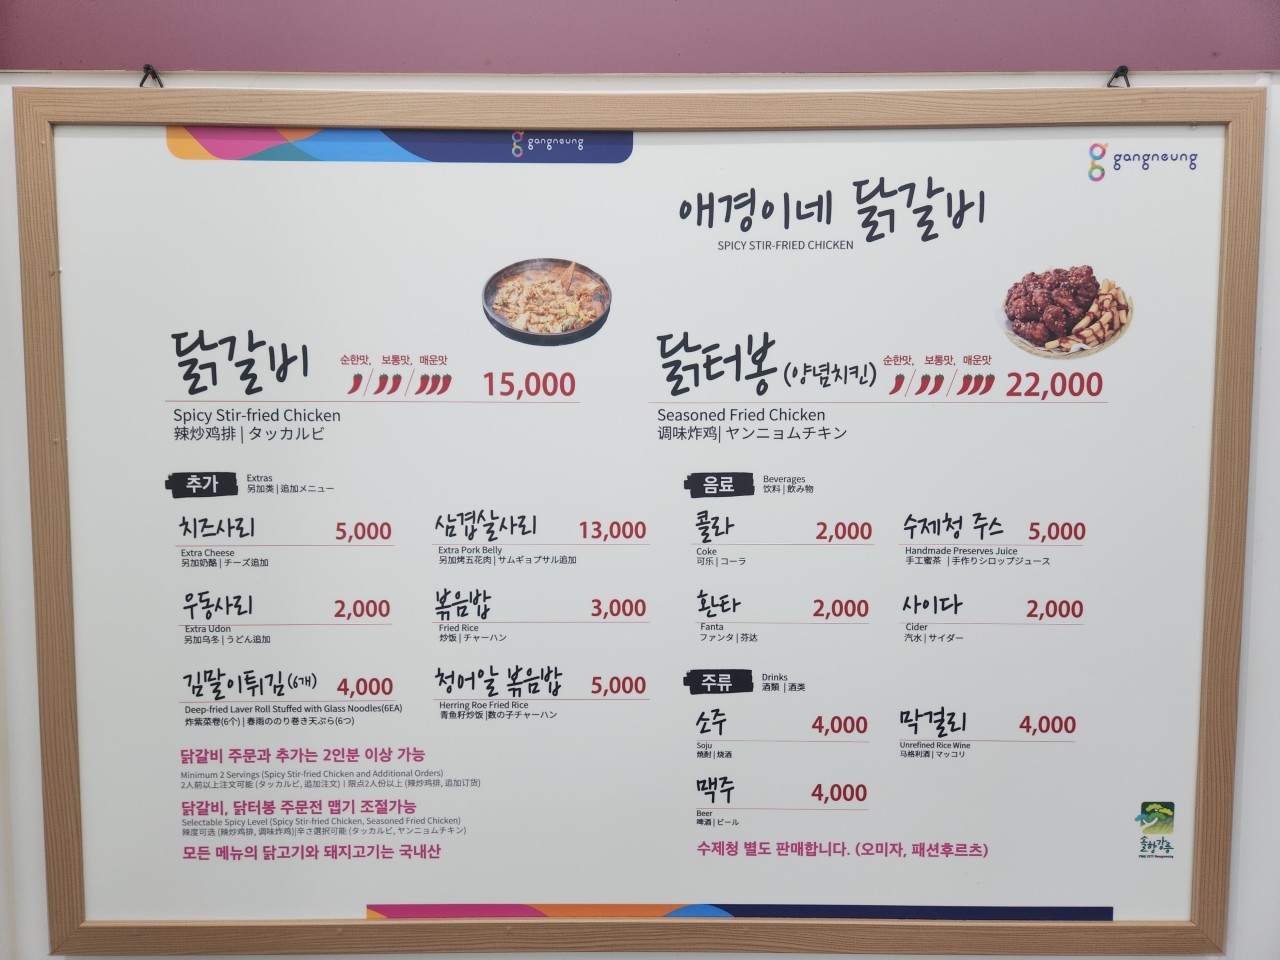 gangneung
gangneung
애경이네 닭갈비
SPICY STIR-FRIED CHICKEN
닭갈비 순한맛, 보통맛, 매운맛 15,000
Spicy Stir-fried Chicken
辣炒鸡排 | タッカルビ
닭터봉 (양념치킨) 순한맛, 보통맛, 매운맛 22,000
Seasoned Fried Chicken
调味炸鸡| ヤンニョムチキン
추가 Extras
另加类 | 追加メニュー
치즈사리 5,000
Extra Cheese
另加奶酪 | チーズ追加
삼겹살사리 13,000
Extra Pork Belly
另加烤五花肉 | サムギョプサル追加
우동사리 2,000
Extra Udon
另加乌冬 | うどん追加
볶음밥 3,000
Fried Rice
炒饭 | チャーハン
김말이튀김(6개) 4,000
Deep-fried Laver Roll Stuffed with Glass Noodles(6EA)
炸紫菜卷(6个) | 春雨ののり巻き天ぷら(6つ)
청어알 볶음밥 5,000
Herring Roe Fried Rice
青鱼籽炒饭 |数の子チャーハン
닭갈비 주문과 추가는 2인분 이상 가능
Minimum 2 Servings (Spicy Stir-fried Chicken and Additional Orders)
2人前以上注文可能 (タッカルビ, 追加注文) | 限点2人份以上 (辣炒鸡排, 追加订货)
닭갈비, 닭터봉 주문전 맵기 조절가능
Selectable Spicy Level (Spicy Stir-fried Chicken, Seasoned Fried Chicken)
辣度可选 (辣炒鸡排, 调味炸鸡)|辛さ選択可能 (タッカルビ, ヤンニョムチキン)
모든 메뉴의 닭고기와 돼지고기는 국내산
음료 Beverages
饮料 | 飲み物
콜라 2,000
Coke
可乐 | コーラ
수제청 주스 5,000
Handmade Preserves Juice
手工蜜茶 | 手作りシロップジュース
환타 2,000
Fanta
ファンタ | 芬达
사이다 2,000
Cider
汽水 | サイダー
주류 Drinks
酒類 | 酒类
소주 4,000
Soju
焼酎 | 烧酒
막걸리 4,000
Unrefined Rice Wine
马格利酒 | マッコリ
맥주 4,000
Beer
啤酒 | ビール
수제청 별도 판매합니다. (오미자, 패션후르츠)
솔향강릉
PINE CITY Gangneung